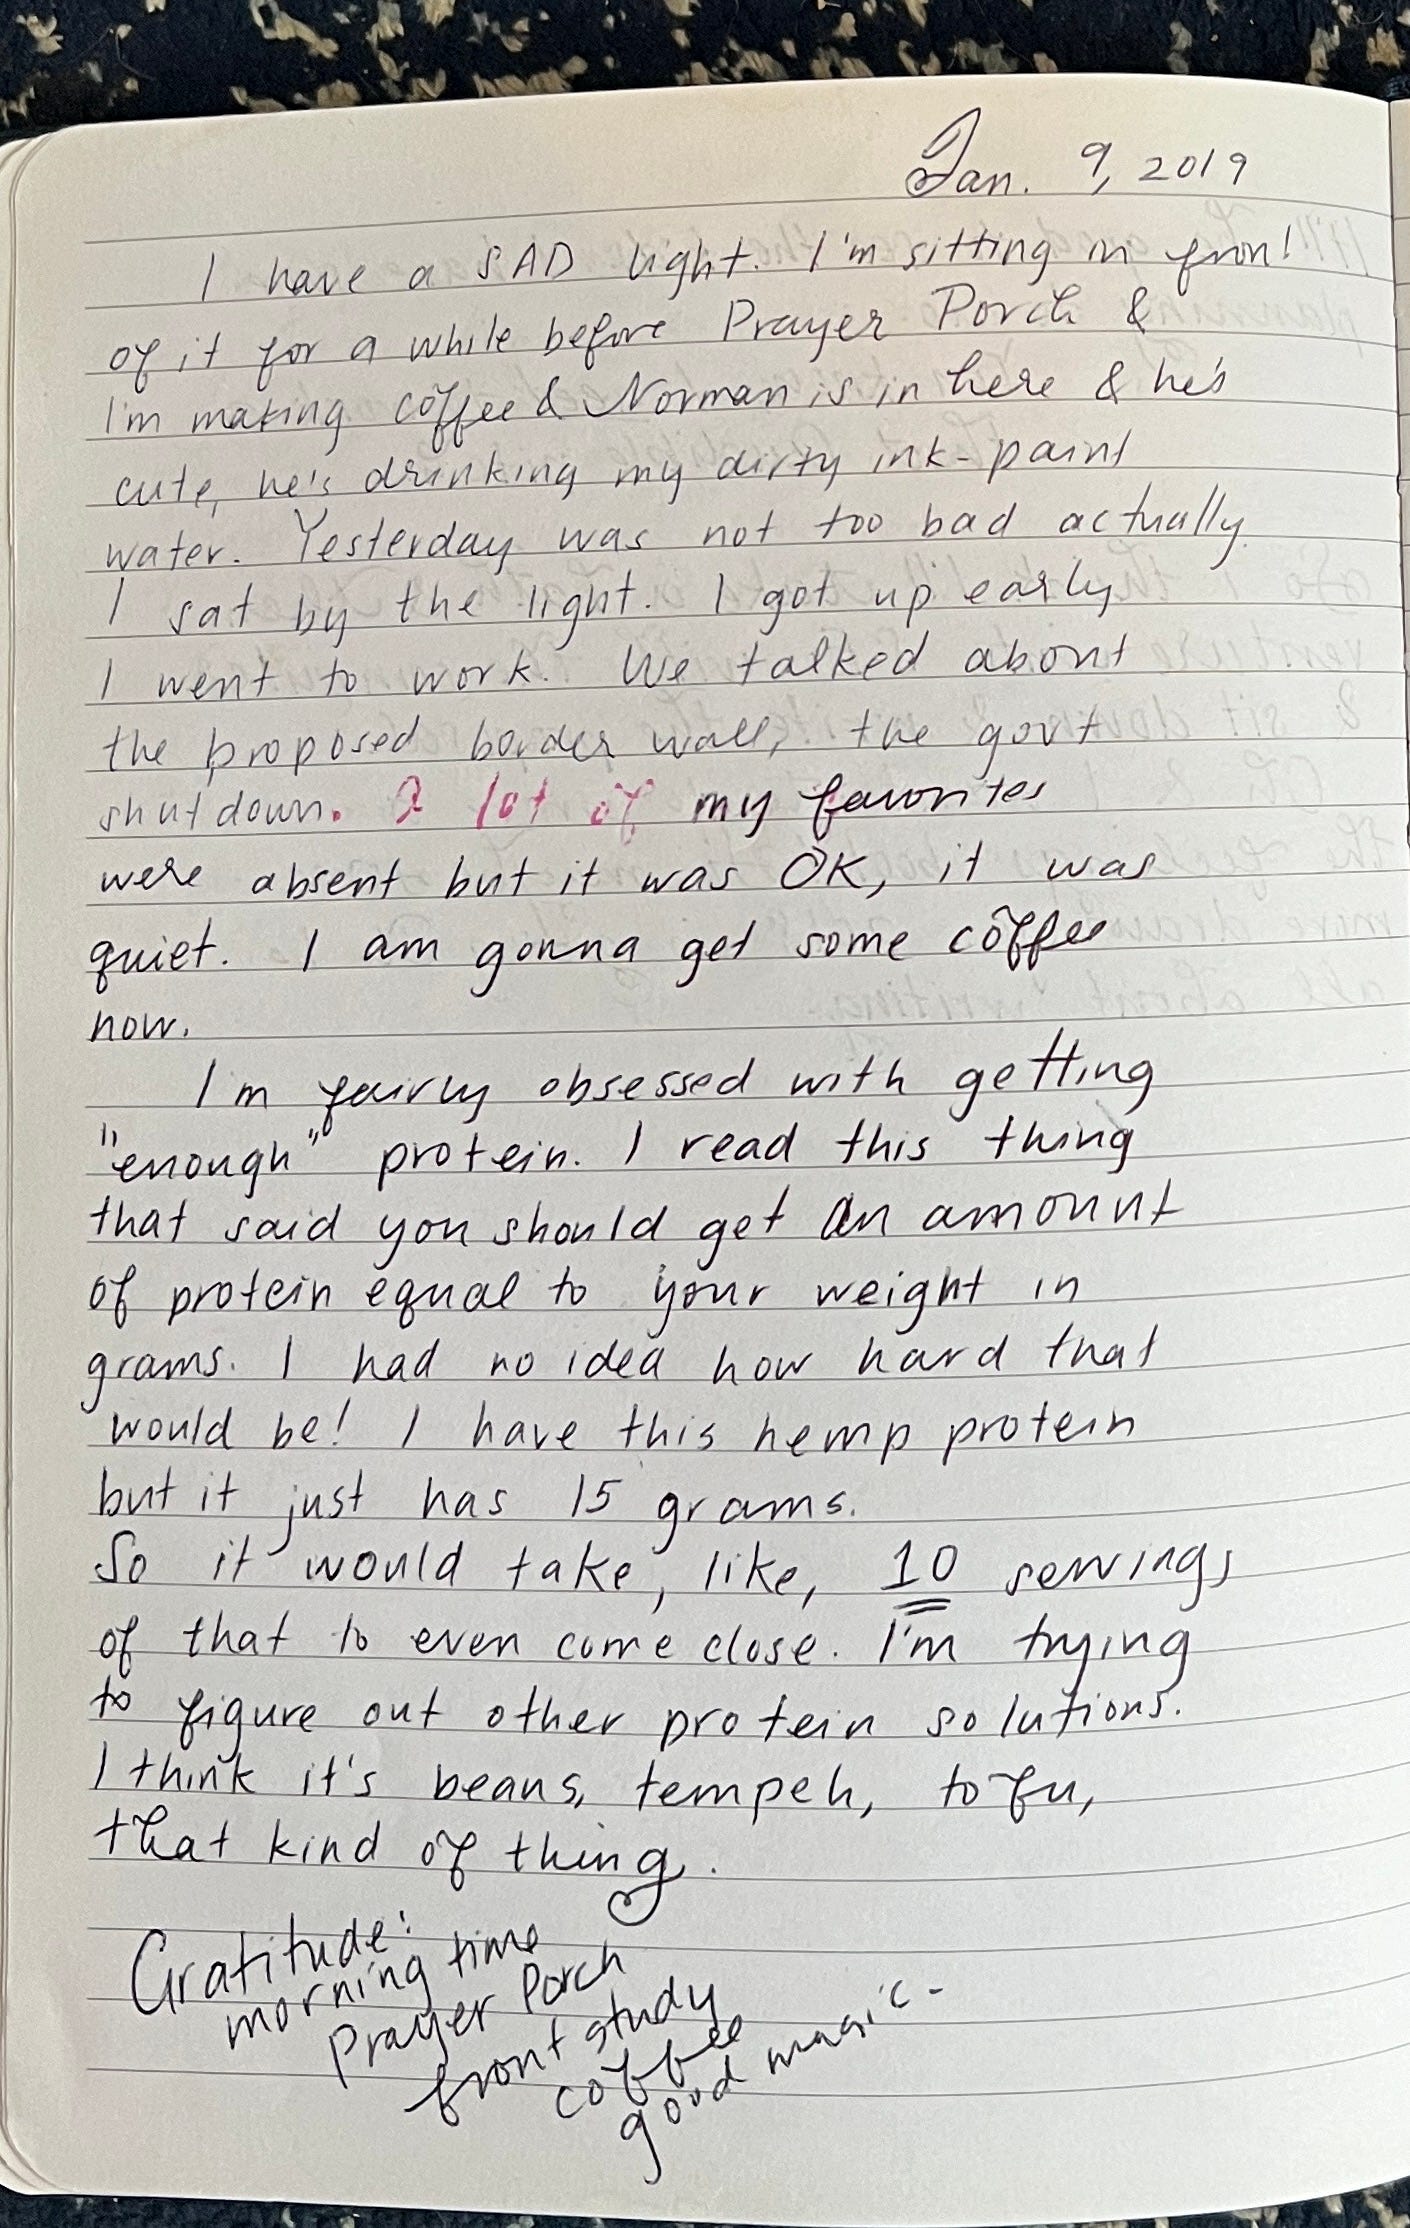 Jan. 9, 2019
I have a SAD light. I'm sitting in front
of it for a while before Prayer Porch &
I'm making coffee & Norman is in here & he's
cute, he's drinking my dirty ink-paint
water. Yesterday was not too bad actually.
I sat by the light. I got up early
I went to work. We talked about
the proposed border wall, the govt
shutdown. A lot of my favorites
were absent but it was OK, it was
quiet. I am gonna get some coffee
now.
I'm fairly obsessed with getting
"enough" protein. I read this thing
that said you should get an amount
of protein equal to your weight in
grams. I had no idea how hard that
would be! I have this hemp protein
but it just has 15 grams.
So it would take, like, 10 servings
of that to even come close. I'm trying
to figure out other protein solutions.
I think it's beans, tempeh, tofu,
that kind of thing.
Gratitude:
morning time
Prayer Porch
front study
coffee
good magic.